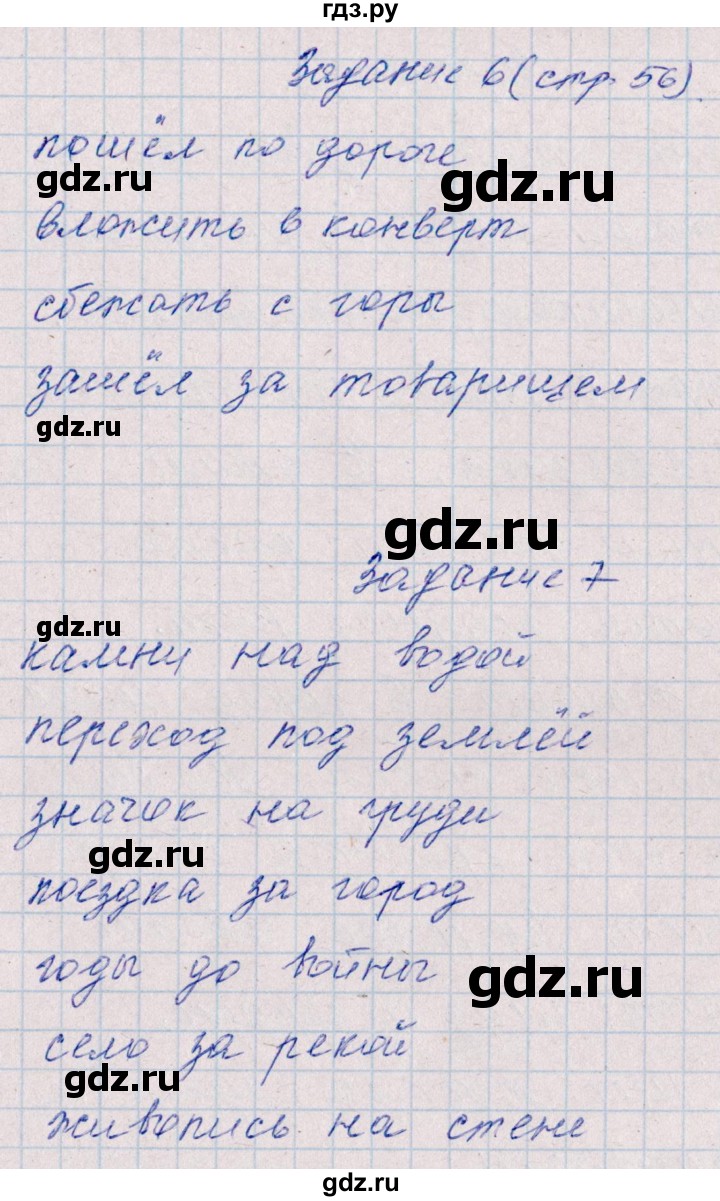 гдз.ру
Задание 6 (стр. 56)
пошёл по дороге
gdz.ru
gdz.ru
вложить в конверт
сбежать с горы
зашёл за товарищем
gdz.ru
gdz.ru
Задание 7
gdz.ru
камни над водой
переход под землёй
значок на груди
gdz.ru
поездка за город
годы до войны
gdz.ru
село за рекой
gdz.ru
живопись на стене
gdz.ru